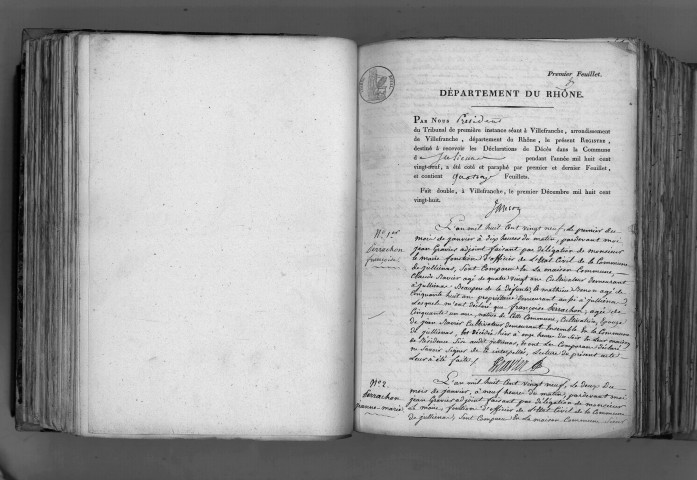 Premier Feuillet.
DÉPARTEMENT DU RHÔNE.
PAR NOUS Président
du Tribunal de première instance séant à Villefranche, arrondissement
de Villefranche, département du Rhône, le présent REGISTRE,
destiné à recevoir les Déclarations de Décès dans la Commune
d Julienas pendant l'année mil huit cent
vingt-neuf, a été coté et paraphé par premier et dernier Feuillet,
et contient quatorze Feuillets.
Fait double, à Villefranche, le premier Décembre mil huit cent
vingt-huit.
N.º 1.er
Perrachon
françoise
L'an mil huit Cent vingt neuf, le premier du
mois de janvier à dix heures du matin, pardevant moi
jean Gravier adjoint faisant par délégation de monsieur
le maire fonction d'officier de l'état Civil de la Commune
de jullienas, Sont Comparu En la maison Commune,
Claude agé de quatre vingt ans Cultivateur demeurant
à jullienas Beaupere de la défunte, & mathieu Benon agé de
Cinquante huit ans propriétaire demeurant aussi à jullienas
Lesquels m'ont déclaré que françoise Perrachon, agée de
Cinquante un ans, native de Cette Commune, Cultivatrice, Epouse
de jean Cultivateur demeurant Ensemble de la Commune
de jullienas, Est décédée hier à onze heures du Soir de leur maison
de Résidence Sise audit jullienas, & ont les Comparans déclaré
ne Savoir Signer de ce interpellés, Lecture du présent acte
Leur a été faite.
Gravier
N.º 2.
Perrachon
jeanne-marie
L'an mil huit Cent vingt neuf, le deux du
mois de janvier, à neuf heures du matin, pardevant moi
jean Gravier adjoint faisant par délégation de monsieur
Le maire, fonction d'officier de l'état Civil de la Commune
de jullienas, Sont Comparu En la maison Commune